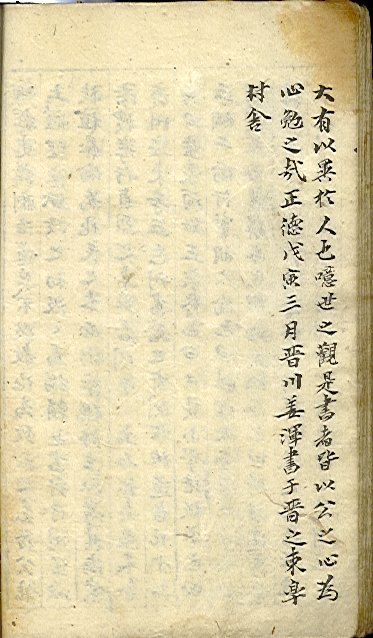 大有以異於人也噫世之觀是書者皆以公之心為
心勉之哉正德戊寅三月晉川姜渾書于晉之東皐
村舍